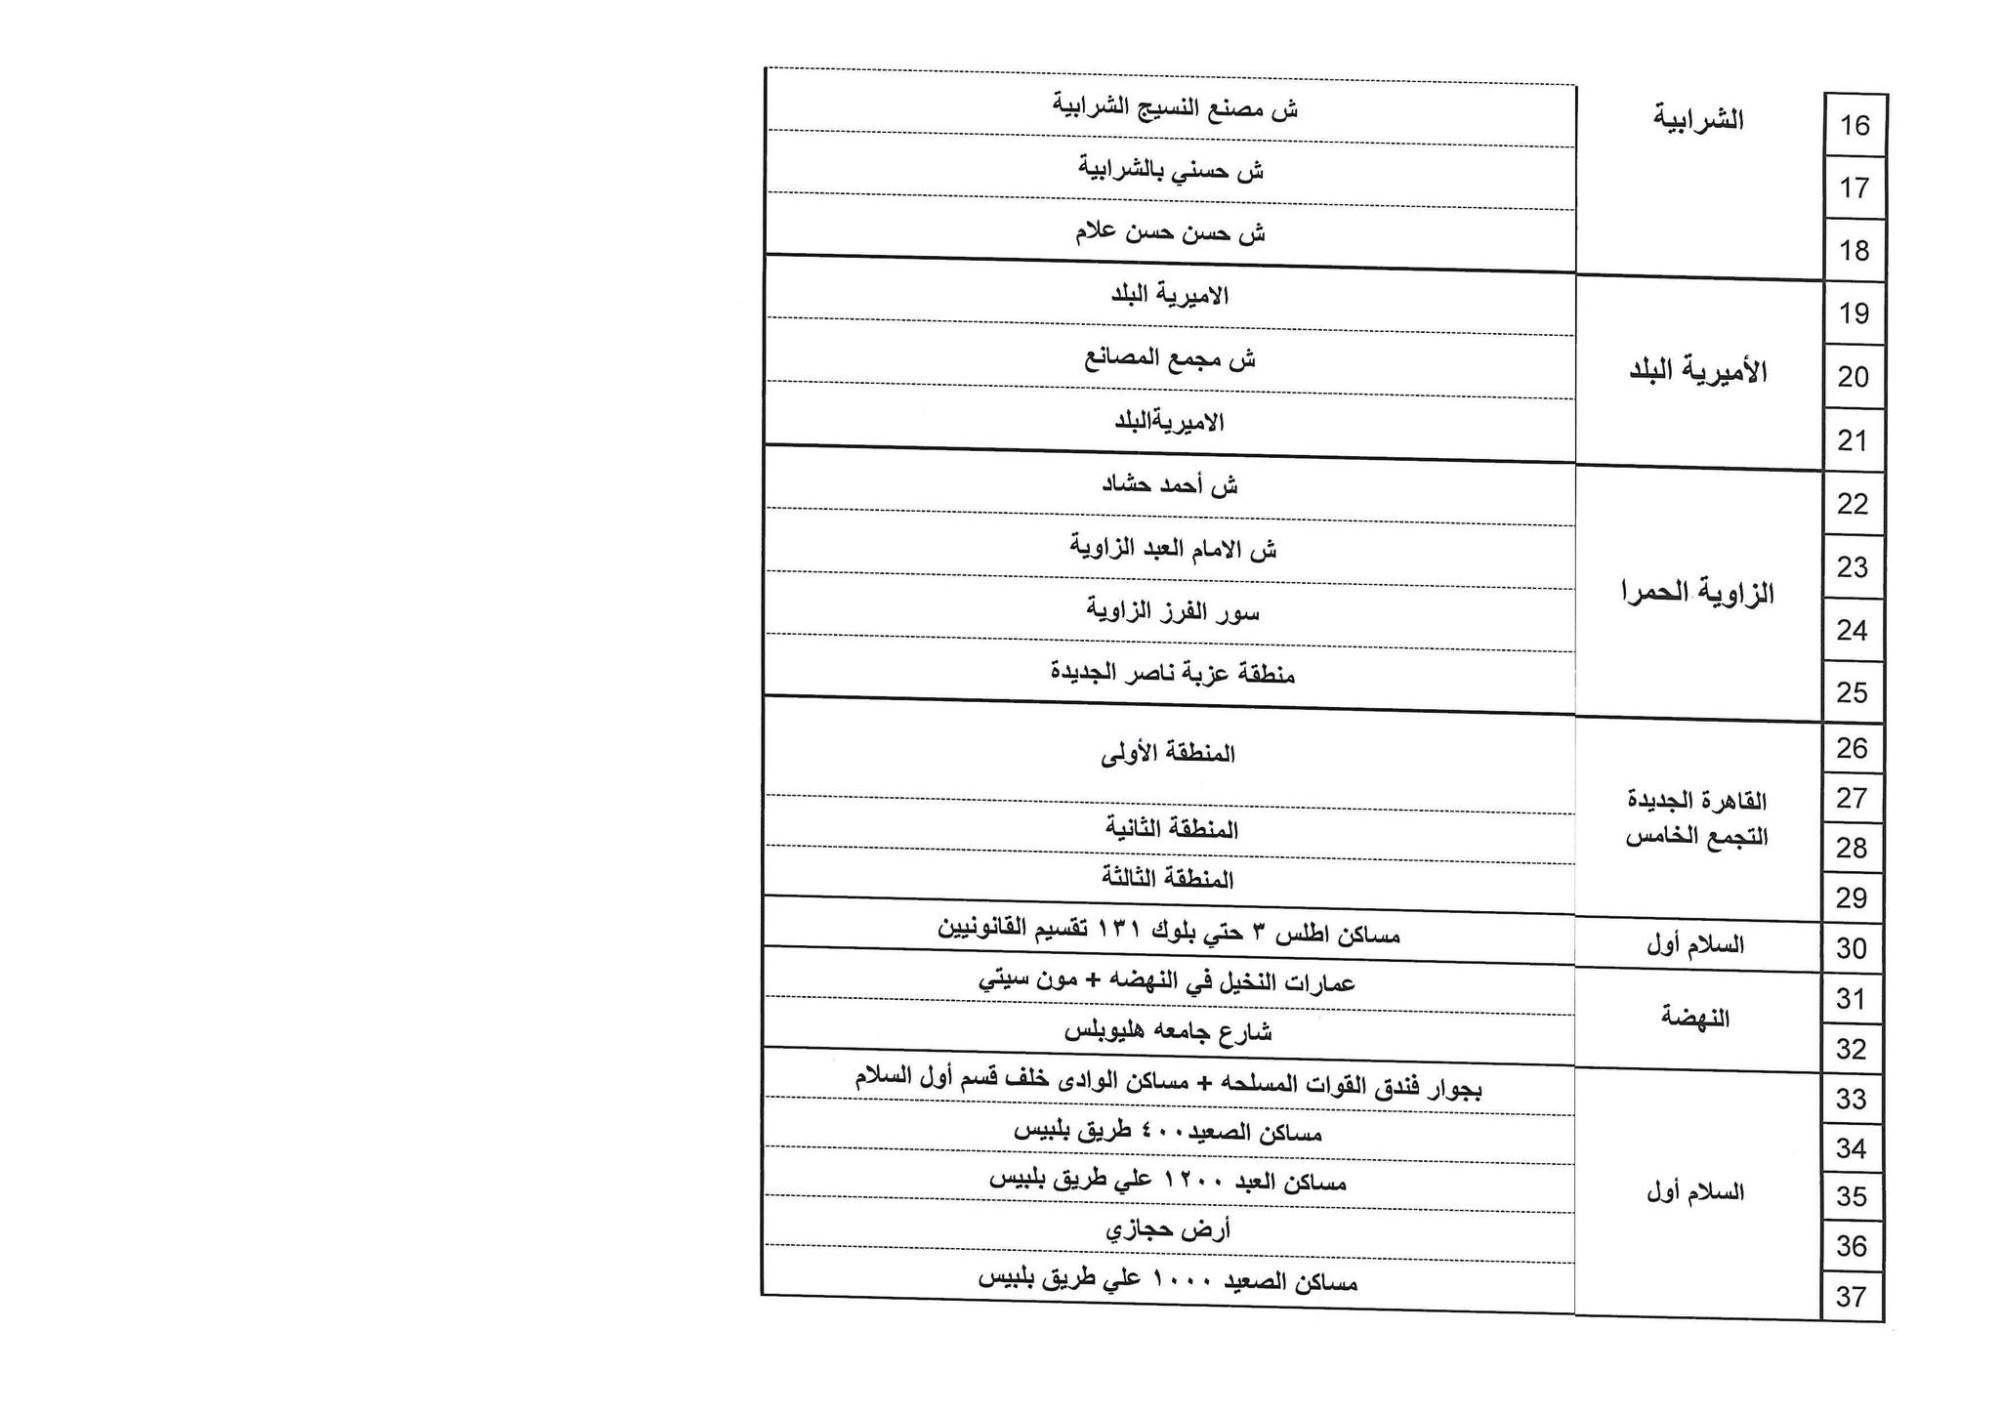 16 الشرابية ش مصنع النسيج الشرابية
17 ش حسني بالشرابية
18 ش حسن حسن علام
19 الاميرية البلد
20 الأميرية البلد ش مجمع المصانع
21 الاميريةالبلد
22 ش أحمد حشاد
23 ش الامام العبد الزاوية
الزاوية الحمرا
24 سور الفرز الزاوية
25 منطقة عزبة ناصر الجديدة
26 المنطقة الأولى
27 القاهرة الجديدة
28 التجمع الخامس المنطقة الثانية
29 المنطقة الثالثة
30 السلام أول مساكن اطلس ٣ حتي بلوك ١٣١ تقسيم القانونيين
31 عمارات النخيل في النهضه + مون سيتي
النهضة
32 شارع جامعه هليوبلس
33 بجوار فندق القوات المسلحه + مساكن الوادى خلف قسم أول السلام
34 مساكن الصعيد٤٠٠ طريق بلبيس
35 السلام أول مساكن العبد ١٢٠٠ علي طريق بلبيس
36 أرض حجازي
37 مساكن الصعيد ١٠٠٠ علي طريق بلبيس